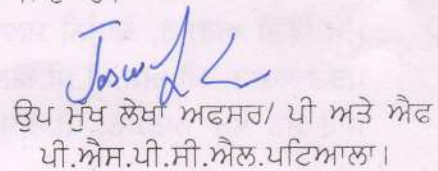 ਉਪ ਮੁੱਖ ਲੇਖਾ ਅਫਸਰ/ ਪੀ ਅਤੇ ਐਫ
ਪੀ.ਐਸ.ਪੀ.ਸੀ.ਐਲ.ਪਟਿਆਲਾ।